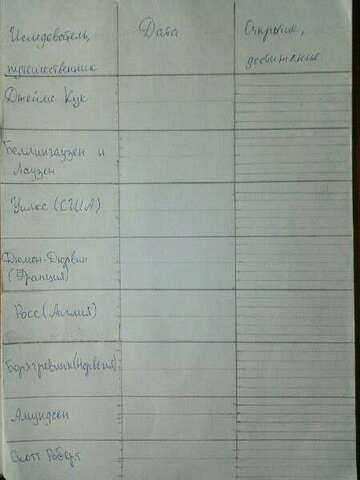 Исследователь, Дата Открытие,
путешественник достижение
Джеймс Кук
Беллинсгаузен и
Лаузен
Уилкс (США)
Дюмон-Дюрвиль
(Франция)
Росс (Англия)
Борхгревинк (Норвегия)
Амундсен
Скотт Роберт